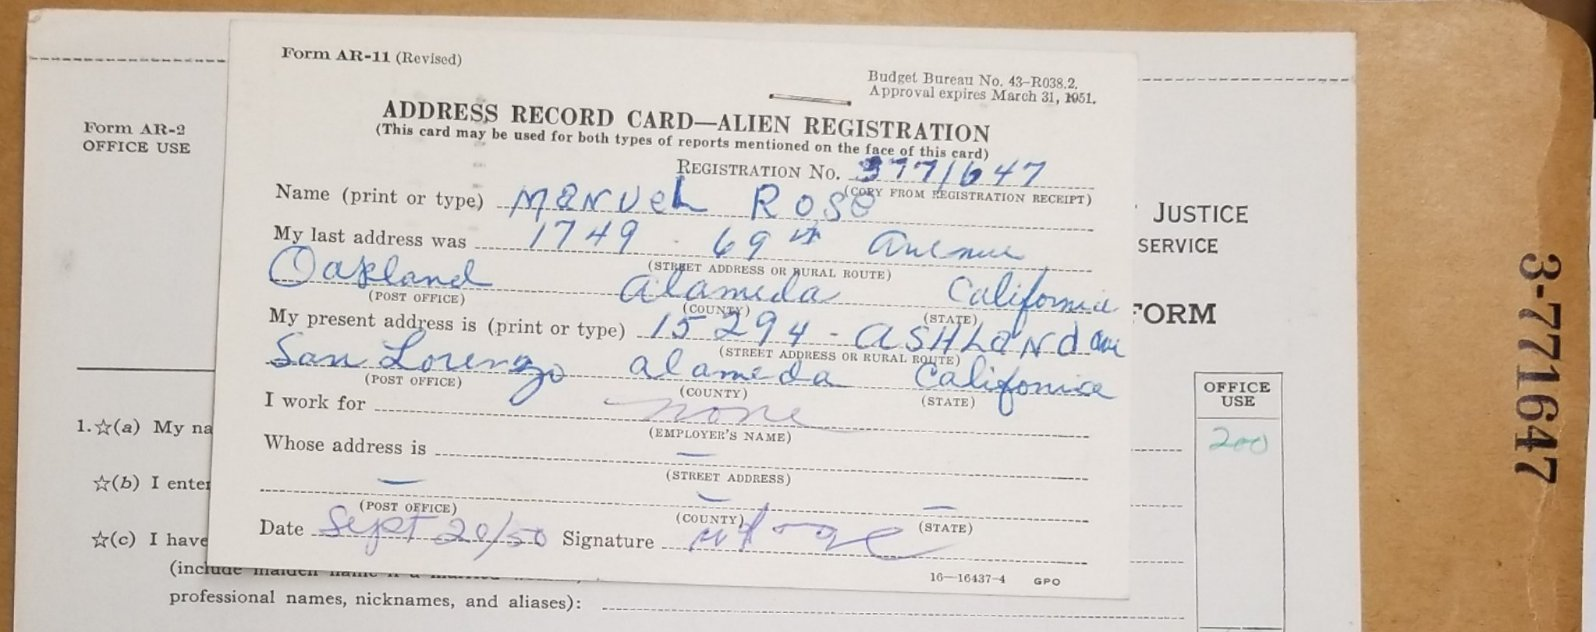 Form AR-11 (Revised)
Budget Bureau No. 43-R038.2.
Approval expires March 31, 1951.
ADDRESS RECORD CARD—ALIEN REGISTRATION
(This card may be used for both types of reports mentioned on the face of this card)
REGISTRATION No. 3771647
(COPY FROM REGISTRATION RECEIPT)
Name (print or type) Manuel Rose
My last address was 1749 - 69th Avenue
(STREET ADDRESS OR RURAL ROUTE)
Oakland Alameda California
(POST OFFICE) (COUNTY) (STATE)
My present address is (print or type) 15294 - ASHLAND ave
(STREET ADDRESS OR RURAL ROUTE)
San Lorenzo alameda Califonia
(POST OFFICE) (COUNTY) (STATE)
I work for none
(EMPLOYER'S NAME)
Whose address is —
(STREET ADDRESS)
— — —
(POST OFFICE) (COUNTY) (STATE)
Date Sept 20/50 Signature
16—16437-4 GPO
Form AR-2
OFFICE USE
JUSTICE
SERVICE
FORM
OFFICE
USE
200
1.☆(a) My na
☆(b) I enter
☆(c) I have
(include maiden name if a married
professional names, nicknames, and aliases):
3-771647